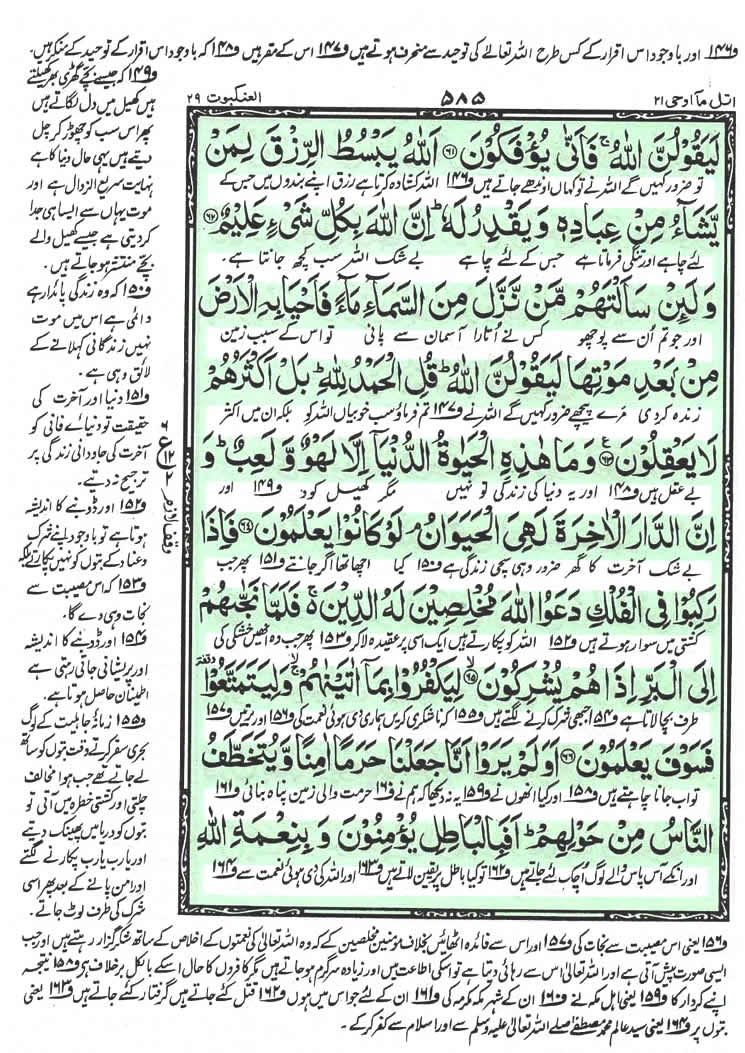 ف۱۴۶ اور باوجود اس اقرار کے کس طرح اللہ تعالےٰ کی توحید سے منحرف ہوتے ہیں ف۱۴۷ اس کے مقر ہیں ف۱۴۸ کہ باوجود اس اقرار کے توحید کے منکر ہیں.
العنکبوت ۲۹
۵۸۵
اتل ما اوحی ۲۱
لَيَقُوْلُنَّ اللّٰهُ ۚ فَاَنّٰى يُؤْفَكُوْنَ ﴿۶۱﴾ اَللّٰهُ يَبْسُطُ الرِّزْقَ لِمَنْ
تو ضرور کہیں گے اللہ نے تو کہاں اوندھے جاتے ہیں ف۱۴۶ اللہ کشادہ کرتا ہے رزق اپنے بندوں میں جس کے
يَّشَآءُ مِنْ عِبَادِهٖ وَيَقْدِرُ لَهٗ ؕ اِنَّ اللّٰهَ بِكُلِّ شَيْءٍ عَلِيْمٌ ﴿۶۲﴾
لئے چاہے اور تنگی فرماتا ہے جس کے لئے چاہے بے شک اللہ سب کچھ جانتا ہے.
وَلَئِنْ سَاَلْتَهُمْ مَّنْ نَّزَّلَ مِنَ السَّمَآءِ مَآءً فَاَحْيَا بِهِ الْاَرْضَ
اور جو تم ان سے پوچھو کس نے اُتارا آسمان سے پانی تو اس کے سبب زمین
مِنْۢ بَعْدِ مَوْتِهَا لَيَقُوْلُنَّ اللّٰهُ ؕ قُلِ الْحَمْدُ لِلّٰهِ ؕ بَلْ اَكْثَرُهُمْ
زندہ کر دی مَرے پیچھے ضرور کہیں گے اللہ نے ف۱۴۷ تم فرماؤ سب خوبیاں اللہ کو بلکہ ان میں اکثر
لَا يَعْقِلُوْنَ ﴿۶۳﴾ وَمَا هٰذِهِ الْحَيٰوةُ الدُّنْيَاۤ اِلَّا لَهْوٌ وَّلَعِبٌ ؕ وَ
بے عقل ہیں ف۱۴۸ اور یہ دنیا کی زندگی تو نہیں مگر کھیل کود ف۱۴۹ اور
اِنَّ الدَّارَ الْاٰخِرَةَ لَهِيَ الْحَيَوَانُ ۘ لَوْ كَانُوْا يَعْلَمُوْنَ ﴿۶۴﴾ فَاِذَا
بے شک آخرت کا گھر ضرور وہی سچی زندگی ہے ف۱۵۰ کیا اچھا تھا اگر جانتے ف۱۵۱ پھر جب
رَكِبُوْا فِي الْفُلْكِ دَعَوُا اللّٰهَ مُخْلِصِيْنَ لَهُ الدِّيْنَ ۚ فَلَمَّا نَجّٰىهُمْ
کشتی میں سوار ہوتے ہیں ف۱۵۲ اللہ کو پکارتے ہیں ایک اسی پر عقیدہ لا کر ف۱۵۳ پھر جب وہ انھیں خشکی کی
اِلَى الْبَرِّ اِذَا هُمْ يُشْرِكُوْنَ ﴿۶۵﴾ لِيَكْفُرُوْا بِمَاۤ اٰتَيْنٰهُمْ ۙ وَلِيَتَمَتَّعُوْا
طرف بچا لاتا ہے ف۱۵۴ جبھی شرک کرنے لگتے ہیں ف۱۵۵ کہ ناشکری کریں ہماری دی ہوئی نعمت کی ف۱۵۶ اور برتیں ف۱۵۷
فَسَوْفَ يَعْلَمُوْنَ ﴿۶۶﴾ اَوَلَمْ يَرَوْا اَنَّا جَعَلْنَا حَرَمًا اٰمِنًا وَّيُتَخَطَّفُ
تو اب جانا چاہتے ہیں ف۱۵۸ اور کیا انھوں نے ف۱۵۹ یہ نہ دیکھا کہ ہم نے ف۱۶۰ حرمت والی زمین پناہ بنائی ف۱۶۱
النَّاسُ مِنْ حَوْلِهِمْ ؕ اَفَبِالْبَاطِلِ يُؤْمِنُوْنَ وَبِنِعْمَةِ اللّٰهِ
اور انکے آس پاس والے لوگ اُچک لئے جاتے ہیں ف۱۶۲ تو کیا باطل پر یقین لاتے ہیں ف۱۶۳ اور اللہ کی دی ہوئی نعمت سے ف۱۶۴
ف۱۴۹ کہ جیسے بچے گھڑی بھر کھیلتے
ہیں کھیل میں دل لگاتے ہیں
پھر اس سب کو چھوڑ کر چل
دیتے ہیں یہی حال دنیا کا ہے
نہایت سریع الزوال ہے اور
موت یہاں سے ایسا ہی جدا
کر دیتی ہے جیسے کھیل والے
بچے منتشر ہو جاتے ہیں.
ف۱۵۰ کہ وہ زندگی پائدار ہے
دائمی ہے اس میں موت
نہیں زندگانی کہلانے کے
لائق وہی ہے.
ف۱۵۱ دنیا اور آخرت کی
حقیقت تو دنیائے فانی کو
آخرت کی جاودانی زندگی پر
ترجیح نہ دیتے.
ف۱۵۲ اور ڈوبنے کا اندیشہ
ہوتا ہے تو باوجود اپنے شرک
و عناد کے بتوں کو نہیں پکارتے بلکہ
ف۱۵۳ کہ اس مصیبت سے
نجات وہی دے گا.
ف۱۵۴ اور ڈوبنے کا اندیشہ
اور پریشانی جاتی رہتی ہے
اطمینان حاصل ہوتا ہے.
ف۱۵۵ زمانۂ جاہلیت کے لوگ
بحری سفر کرتے وقت بتوں کو ساتھ
لے جاتے تھے جب ہوا مخالف
چلتی اور کشتی خطرہ میں آتی تو
بتوں کو دریا میں پھینک دیتے
اور یارب یارب پکارنے لگتے
اور امن پانے کے بعد پھر اسی
شرک کی طرف لوٹ جاتے.
۶
ع
۱۲
۲
وقف لازم
ف۱۵۶ یعنی اس مصیبت سے نجات کی ف۱۵۷ اور اس سے فائدہ اٹھائیں بخلاف مؤمنین مخلصین کے کہ وہ اللہ تعالیٰ کی نعمتوں کے اخلاص کے ساتھ شکر گزار رہتے ہیں اور جب
ایسی صورت پیش آتی ہے اور اللہ تعالیٰ اس سے رہائی دیتا ہے تو اسکی اطاعت میں اور زیادہ سرگرم ہو جاتے ہیں مگر کافروں کا حال اسکے بالکل برخلاف ہے ف۱۵۸ نتیجہ
اپنے کردار کا ف۱۵۹ یعنی اہل مکہ نے ف۱۶۰ ان کے شہر مکہ مکرمہ کی ف۱۶۱ ان کے لئے جو اس میں ہوں ف۱۶۲ قتل کئے جاتے ہیں گرفتار کئے جاتے ہیں ف۱۶۳ یعنی
بتوں پر ف۱۶۴ یعنی سید عالم محمد مصطفےٰ صلی اللہ تعالیٰ علیہ وسلم سے اور اسلام سے کفر کر کے.